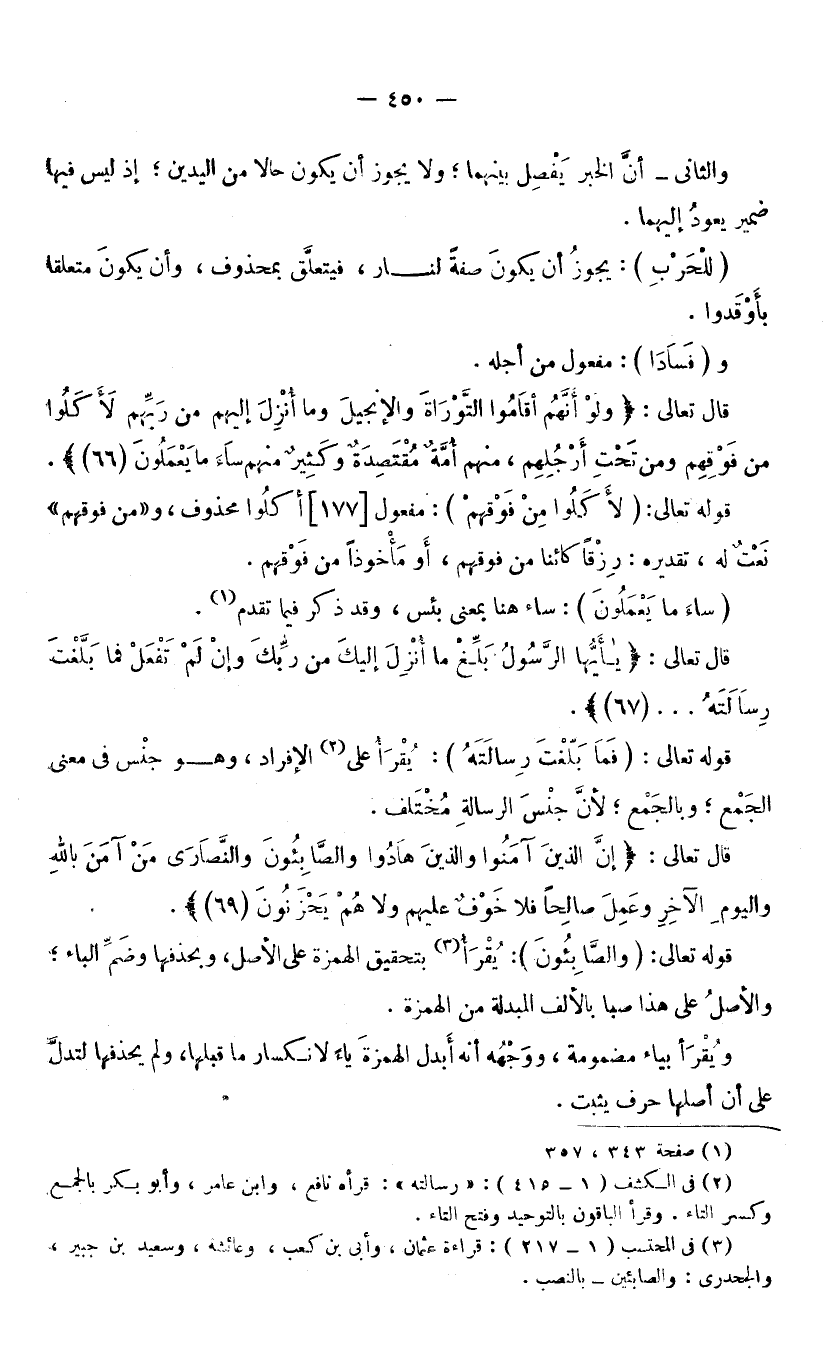 — ٤٥٠ —
والثانى – أنَّ الخبر يَفْصِل بينهما ؛ ولا يجوز أن يكون حالا من اليدين ؛ إذ ليس فيها
ضمير يعودُ إليهما .
( لِلْحَرْبِ ) : يجوزُ أن يكونَ صفةً لنــار ، فيتعلَّق بمحذوف ، وأن يكونَ متعلقا
بأَوْقَدوا .
و ( فَسَادًا ) : مفعول من أجله .
قال تعالى : ﴿ ولَوْ أنَّهُم أقامُوا التَّوْرَاةَ والإنجيلَ وما أُنْزِلَ إليهم من رَبِّهِم لَأَ كَلُوا
من فَوْقِهِم ومن تَحْتِ أَرْجُلِهِم ، منهم أُمَّةٌ مُقْتَصِدَةٌ وكَثِيرٌ منهم ساءَ ما يَعْمَلُونَ (٦٦) ﴾ .
قوله تعالى: ( لأَ كَلُوا مِنْ فَوْقِهِمْ ) : مفعول [١٧٧] أكلُوا محذوف ، و«من فوقهم»
نَعْتٌ له ، تقديره : رِزْقًا كائنا من فوقهم ، أو مَأْخوذاً من فَوْقهم .
( ساءَ ما يَعْمَلُونَ ) : ساء هنا بمعنى بئس ، وقد ذكر فيما تقدم(١) .
قال تعالى : ﴿ يٰأَيُّها الرَّسُولُ بَلِّغْ ما أُنْزِلَ إليكَ من ربِّكَ وإنْ لَمْ تَفْعَلْ فما بَلَّغْتَ
رِسَالَتَهُ . . . (٦٧) ﴾ .
قوله تعالى : ( فَمَا بَلَّغْتَ رِسالَتَهُ ) : يُقْرَأُ على(٢) الإفراد ، وهــو جِنْس فى معنى
الجَمْع ؛ وبالجَمْع ؛ لأنَّ جِنْسَ الرسالةِ مُخْتَلف .
قال تعالى : ﴿ إنَّ الذينَ آمَنُوا والذينَ هَادُوا والصَّابِئُونَ والنَّصَارَى مَنْ آمَنَ باللهِ
واليومِ الآخِرِ وعَمِلَ صالِحاً فلا خَوْفٌ عليهم ولا هُمْ يَحْزَنُونَ (٦٩) ﴾ .
قوله تعالى: ( والصَّابِئُونَ ): يُقْرَأ(٣) بتحقيق الهمزة على الأصل، وبحذفها وضَمِّ الباء ؛
والأصلُ على هذا صبا بالألف المبدلة من الهمزة .
ويُقْرَأ بياء مضمومة ، ووَجْهُه أنه أَبدل الهمزةَ ياءً لانكسار ما قبلها، ولم يحذفها لتدلَّ
على أن أصلها حرف يثبت .
(١) صفحة ٣٤٣ ، ٣٥٧
(٢) فى الكشف ( ١ – ٤١٥ ) : « رسالته » : قرأه نافع ، وابن عامر ، وأبو بكر بالجمع
وكسر التاء . وقرأ الباقون بالتوحيد وفتح التاء .
(٣) فى المحتسب ( ١ – ٢١٧ ) : قراءة عثمان ، وأبى بن كعب ، وعائشة ، وسعيد بن جبير ،
والجحدرى : والصابئين – بالنصب .